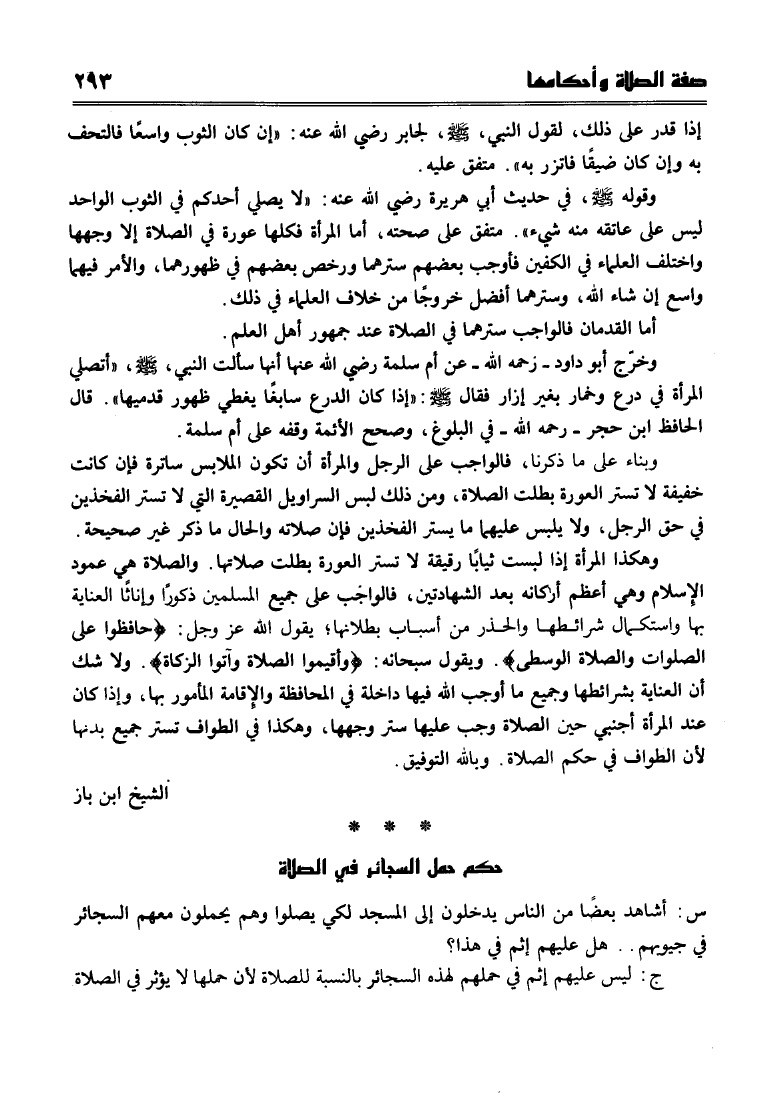 صفة الصلاة وأحكامها ٢٩٣
إذا قدر على ذلك، لقول النبي، ﷺ، لجابر رضي الله عنه: «إن كان الثوب واسعًا فالتحف
به وإن كان ضيقًا فاتزر به». متفق عليه.
وقوله ﷺ، في حديث أبي هريرة رضي الله عنه: «لا يصلي أحدكم في الثوب الواحد
ليس على عاتقه منه شيء». متفق على صحته، أما المرأة فكلها عورة في الصلاة إلا وجهها
واختلف العلماء في الكفين فأوجب بعضهم سترهما ورخص بعضهم في ظهورهما، والأمر فيهما
واسع إن شاء الله، وسترهما أفضل خروجًا من خلاف العلماء في ذلك.
أما القدمان فالواجب سترهما في الصلاة عند جمهور أهل العلم.
وخرّج أبو داود ـ رحمه الله ـ عن أم سلمة رضي الله عنها أنها سألت النبي، ﷺ، «أتصلي
المرأة في درع وخمار بغير إزار فقال ﷺ: «إذا كان الدرع سابغًا يغطي ظهور قدميها». قال
الحافظ ابن حجر ـ رحمه الله ـ في البلوغ، وصحح الأئمة وقفه على أم سلمة.
وبناء على ما ذكرنا، فالواجب على الرجل والمرأة أن تكون الملابس ساترة فإن كانت
خفيفة لا تستر العورة بطلت الصلاة، ومن ذلك لبس السراويل القصيرة التي لا تستر الفخذين
في حق الرجل، ولا يلبس عليهما ما يستر الفخذين فإن صلاته والحال ما ذكر غير صحيحة.
وهكذا المرأة إذا لبست ثيابًا رقيقة لا تستر العورة بطلت صلاتها. والصلاة هي عمود
الإسلام وهي أعظم أركانه بعد الشهادتين، فالواجب على جميع المسلمين ذكورًا وإناثًا العناية
بها واستكمال شرائطها والحذر من أسباب بطلانها؛ يقول الله عز وجل: ﴿حافظوا على
الصلوات والصلاة الوسطى﴾. ويقول سبحانه: ﴿وأقيموا الصلاة وآتوا الزكاة﴾. ولا شك
أن العناية بشرائطها وجميع ما أوجب الله فيها داخلة في المحافظة والإقامة المأمور بها، وإذا كان
عند المرأة أجنبي حين الصلاة وجب عليها ستر وجهها، وهكذا في الطواف تستر جميع بدنها
لأن الطواف في حكم الصلاة. وبالله التوفيق.
الشيخ ابن باز
* * *
حكم حمل السجائر في الصلاة
س: أشاهد بعضًا من الناس يدخلون إلى المسجد لكي يصلوا وهم يحملون معهم السجائر
في جيوبهم . . هل عليهم إثم في هذا؟
ج: ليس عليهم إثم في حملهم لهذه السجائر بالنسبة للصلاة لأن حملها لا يؤثر في الصلاة